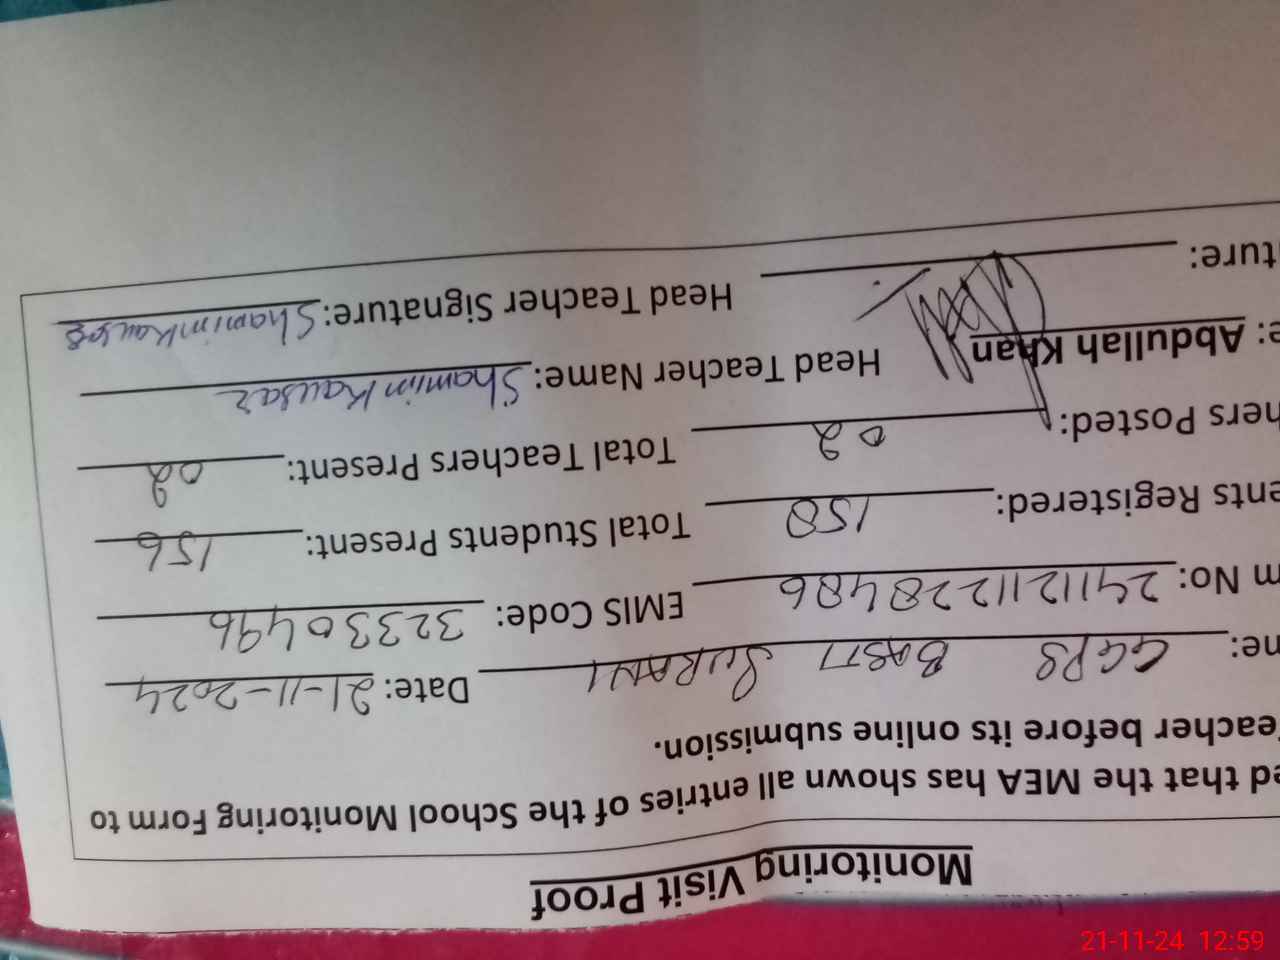 Monitoring Visit Proof
ed that the MEA has shown all entries of the School Monitoring Form to
Teacher before its online submission.
me: GGPS BASTI SURANI Date: 21-11-2024
m No: 24112112228486 EMIS Code: 32330496
ents Registered: 158 Total Students Present: 156
hers Posted: 02 Total Teachers Present: 02
e: Abdullah Khan Head Teacher Name: Shamim Kausar
ture: Head Teacher Signature: Shamim Kausar
21-11-24 12:59